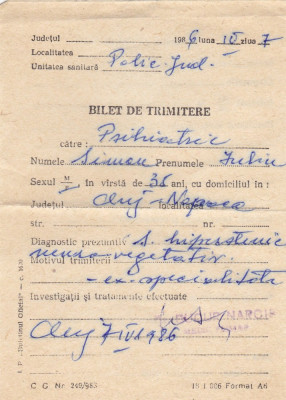 Județul 1986 luna IV ziua 7
Localitatea
Unitatea sanitară Polic. Jud.
BILET DE TRIMITERE
către: Psihiatrie
Numele Simon Prenumele Iuliu
Sexul M/F în vîrstă de 35 ani, cu domiciliul în:
Județul Cluj-Napoca localitatea
str. nr.
Diagnostic prezumtiv S. hiperstenic
neuro vegetativ
Motivul trimiterii
- ex. specialitate
Investigații și tratamente efectuate
Cluj 7 IV 1986
I. P. „Buletinul Oficial" — c. M.S.
C. G. Nr. 249/983
Format A6